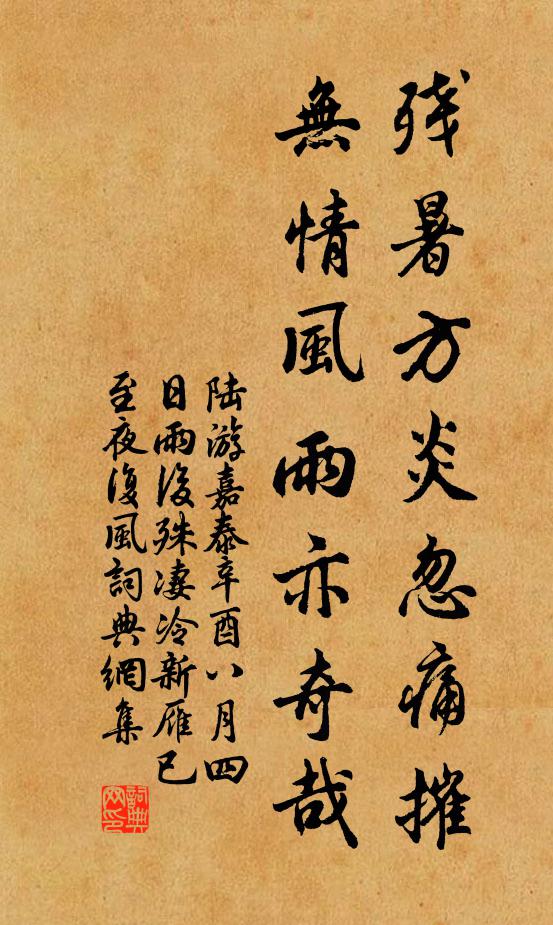 残暑方炎忽痛摧
無情風雨亦奇哉
陆游嘉泰辛酉八月四
日雨後殊凄冷新雁已
至夜復風詞典網集
詞典網印